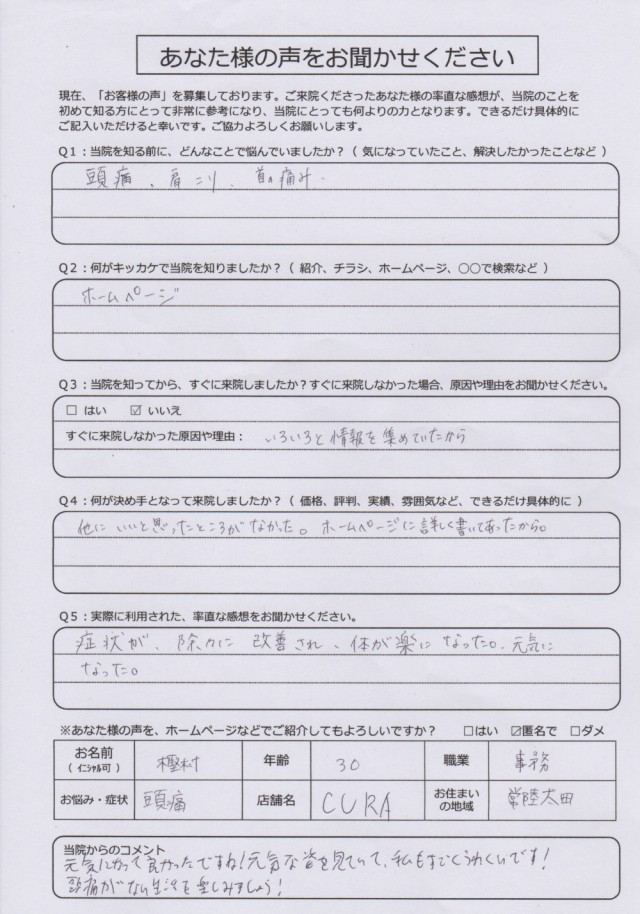 あなた様の声をお聞かせください
現在、「お客様の声」を募集しております。ご来院くださったあなた様の率直な感想が、当院のことを
初めて知る方にとって非常に参考になり、当院にとっても何よりの力となります。できるだけ具体的に
ご記入いただけると幸いです。ご協力よろしくお願いします。
Q1：当院を知る前に、どんなことで悩んでいましたか？（ 気になっていたこと、解決したかったことなど ）
頭痛、肩こり、首の痛み
Q2：何がキッカケで当院を知りましたか？（ 紹介、チラシ、ホームページ、○○で検索など ）
ホームページ
Q3：当院を知ってから、すぐに来院しましたか？すぐに来院しなかった場合、原因や理由をお聞かせください。
□ はい ☑ いいえ
すぐに来院しなかった原因や理由： いろいろと情報を集めていたから
Q4：何が決め手となって来院しましたか？（ 価格、評判、実績、雰囲気など、できるだけ具体的に ）
他にいいと思ったところがなかった。ホームページに詳しく書いてあったから。
Q5：実際に利用された、率直な感想をお聞かせください。
症状が、除々に改善され、体が楽になった。元気に
なった。
※あなた様の声を、ホームページなどでご紹介してもよろしいですか？ □はい ☑匿名で □ダメ
お名前 樫村 年齢 30 職業 事務
（ イニシャル可 ）
お悩み・症状 頭痛 店舗名 CURA お住まい 常陸太田
の地域
当院からのコメント
元気になって良かったですね！元気な姿を見ていて、私もすごくうれしいです！
頭痛がない生活を楽しみましょう！